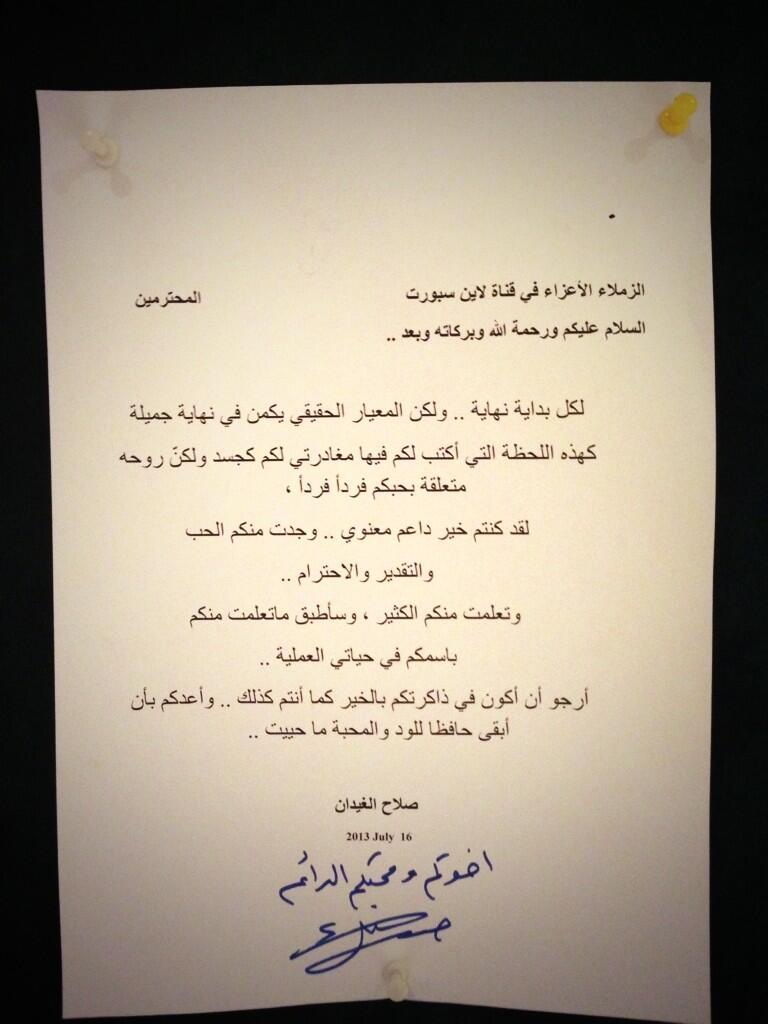 الزملاء الأعزاء في قناة لاين سبورت المحترمين
السلام عليكم ورحمة الله وبركاته وبعد ..
لكل بداية نهاية .. ولكن المعيار الحقيقي يكمن في نهاية جميلة
كهذه اللحظة التي أكتب لكم فيها مغادرتي لكم كجسد ولكنّ روحه
متعلقة بحبكم فردأ فردأ ،
لقد كنتم خير داعم معنوي .. وجدت منكم الحب
والتقدير والاحترام ..
وتعلمت منكم الكثير ، وسأطبق ماتعلمت منكم
باسمكم في حياتي العملية ..
أرجو أن أكون في ذاكرتكم بالخير كما أنتم كذلك .. وأعدكم بأن
أبقى حافظا للود والمحبة ما حييت ..
صلاح الغيدان
2013 July 16
اخوتكم ومحبتكم الدائم